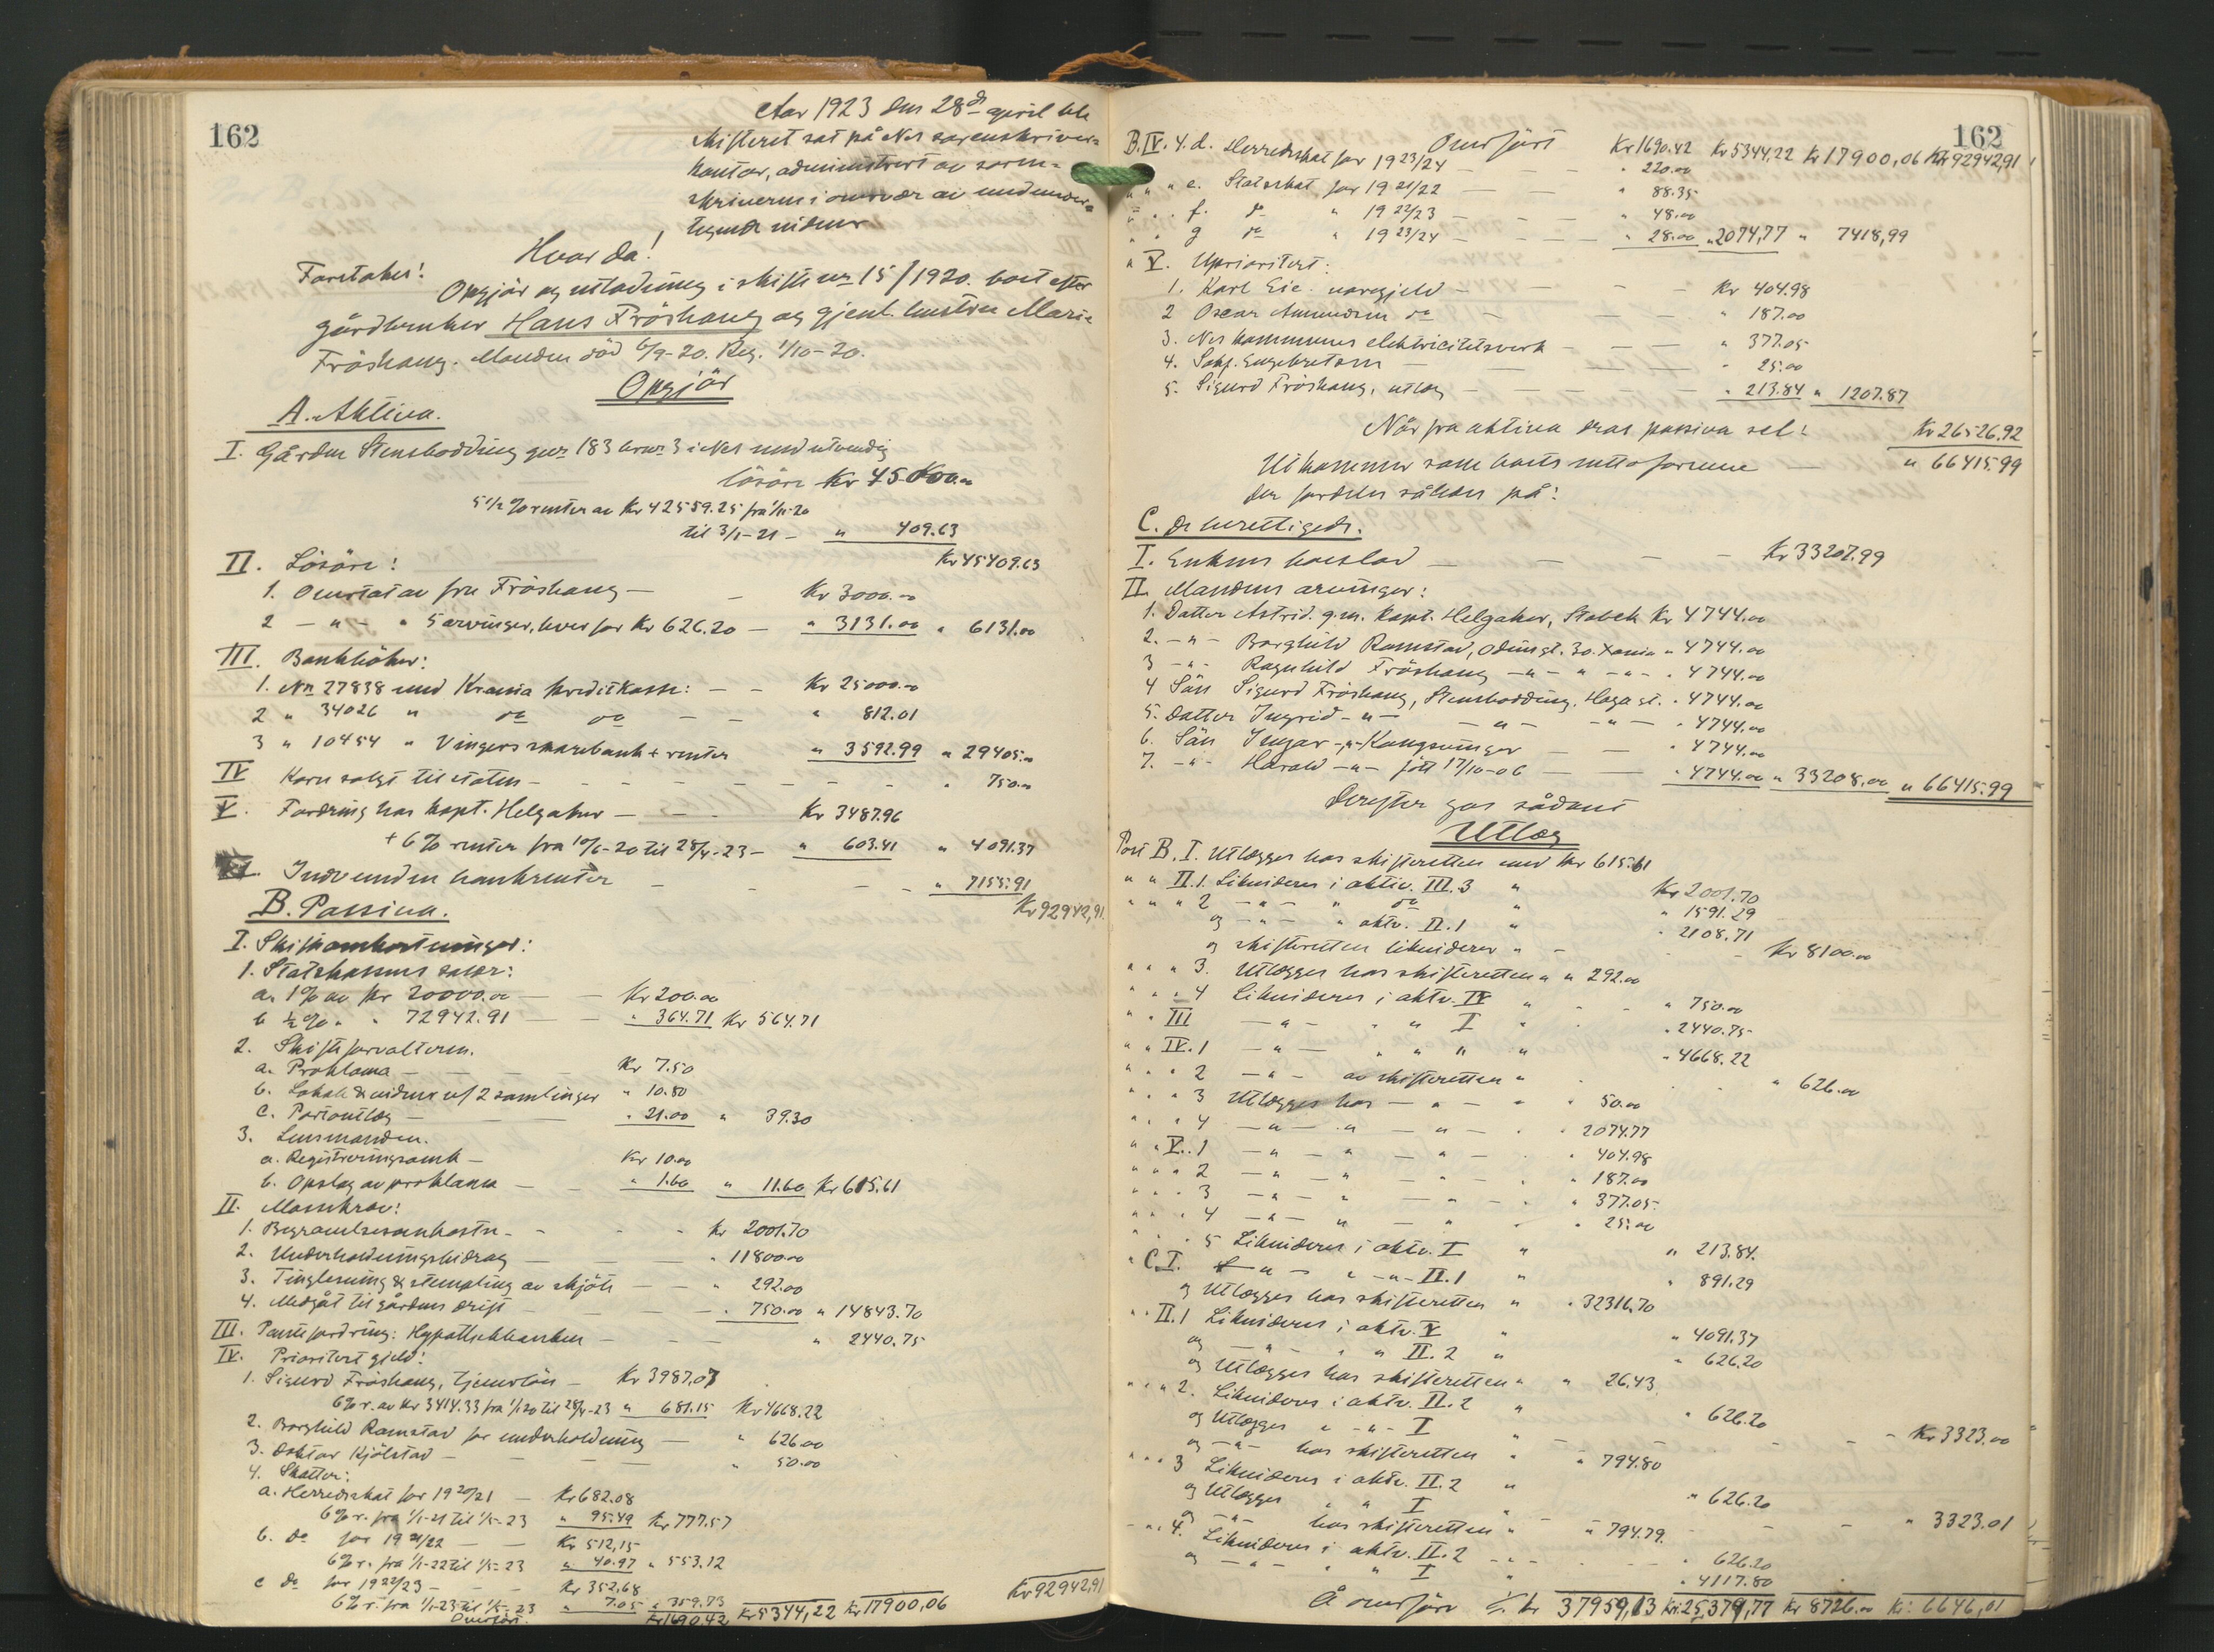 162
Aar 1923 den 28de april ble
skifteret sat på Nes sorenskriver-
kontor, administrert av soren-
skriveren i overvær av undertegnede vidner
Hvor da!
Foretokes!
Opgjör og utlodning i skifte nr 15/1920. boet efter
gårdbruker Hans Fröshaug og gjenl. hustru Marie
Fröshaug. Manden död 6/9-20. Reg. 1/10-20.
Opgjör
A. Aktiva.
I. Gården Stensbodding gnr 183 brnr 3 i Nes med utvendig
lösöre Kr 45000.00
5 1/2 % renter av Kr 42559.25 fra 1/11-20
til 3/1-21 - " 409.63
Kr 45409.63
II. Lösöre:
1. Overtat av fru Fröshaug - - Kr 3000.00
2 - " - " 5 arvinger, hver for Kr 626.20 - " 3131.00 " 6131.00
III. Bankböker:
1. No 27838 med Krania Kreditkasse: - - Kr 25000.00
2 " 34026 " do do - - " 812.01
3 " 10454 " Vingers sparebank + renter " 3592.99 " 29405.00
IV Korn solgt til staten - - - - - - - - " 750.00
V. Fordring hos kapt. Helgaker - - - Kr 3487.96
+ 6% renter fra 10/6-20 til 28/4-23 - " 603.41 " 4091.37
VI. Indvundne bankrenter - - - - " 7155.91
Kr 92942,91
B. Passiva.
I. Skifteomkostninger:
1. Statskassens salær:
a. 1% av Kr 20000.00 - - Kr 200.00
b ½% " " 72942.91 - - " 364.71 Kr 564.71
2. Skifteforvalteren.
a. Proklama - - - - Kr 7.50
b. Lokale & vidner v/ 2 samlinger " 10.80
c. Portoutlæg - - - " 21.00 " 39.30
3. Lensmanden.
a. Registreringsomk - Kr 10.00
b. Opslag av proklama - - " 1.60 " 11.60 Kr 615.61
II. Massekrav:
1. Begravelsesomkostn - - - - Kr 2001.70
2. Underholdningsbidrag - - - " 11800.00
3. Tinglesning & stempling av skjöte - - " 292.00
4. Medgåt til gårdens drift - - - - " 750.00 " 14843.70
III. Pantefordring: Hypothekbanken - - - " 2440.75
IV. Prioritert gjeld:
1. Sigurd Fröshaug, tjenerlön - Kr 3987.07
6% r. av Kr 3414.33 fra 1/1 20 til 28/4-23 " 681.15 Kr 4668.22
2. Borghild Ramstad for underholdning - " 626.00
3. Doktor Kjölstad - - - - " 50.00
4. Skatter:
a. Herredsskat for 1920/21 - Kr 682.08
6% r. fra 1/1-21 til 1/5-23 " 95.49 Kr 777.57
b. do for 1921/22 - - Kr 512,15
6% r. fra 1/1-22 til 1/5-23 " 40.97 " 553.12
c do for 1922/23 - - - Kr 352,68
6% r. fra 1/1-23 til 1/5-23 " 7.05 " 359.73
Overföres Kr 1690.42 Kr 5344,22 Kr 17900,06 Kr 92942,91
162
Overfört Kr 1690.42 Kr 5344,22 Kr 17900,06 Kr 92942,91
B. IV. 4. d. Herredsskat for 1923/24 - - - " 220.00
" " " e. Statsskat for 1921/22 - - - " 88.35
" " " f. do " 1922/23 - - - " 48.00
" " " g do " 1923/24 - - - " 28.00 " 2074,77 " 7418,99
" V. Uprioritert:
1. Karl Eie. varegjeld - - - - Kr 404.98
2 Oscar Amundsen do - - - " 187.00
3. Nes kommunes elektricitetsverk - - - " 377.05
4. Sakf. Engebretsen - - - - " 25.00
5. Sigurd Fröshaug, utlæg - - - - " 213.84 " 1207.87
Når fra aktiva dras passiva sel: Kr 26526.92
Utkommer som boets nettoformue - " 66415.99
der fordeles således på:
C. De berettigede.
I. Enkens boeslod - - - - Kr 33207.99
II. Mandens arvinger:
1. Datter Astrid. g.m. Kapt. Helgaker, Stabek Kr 4744.00
2. - " - Borghild Ramstad, Odinsgt. 30. Xania " 4744.00
3 - " - Ragnhild Fröshaug - " - " - " - " 4744.00
4 Sön Sigurd Fröshaug, Stensbodding. Haga st. " 4744.00
5. Datter Ingrid - " - - " - - " - " 4744.00
6. Sön Ingar - " - Kongsvinger - - " 4744.00
7. - " - Harald - " - född 17/10-06 - - " 4744.00 " 33208,00 " 66415.99
Derefter gas sådant
Utlæg
Post B. I. Utlægges hos skifteretten med Kr 615.61
" " II.1. Likvideres i aktiv. III.3 " Kr 2001.70
" " " 2 - " - " do " " 1591.29
og - " - " aktv. II.1 " " 2108.71
og skifteretten likviderer " - - Kr 8100.00
" " " 3. Utlægges hos skifteretten " " 292.00
" " " 4 Likvideres i aktv. IV " - - " 750.00
" " III - " - " " I " " 2440.75
" " IV. 1 - " - " " " " " 4668.22
" " " 2 - " - av skifteretten " " 626.00
" " " 3 Utlægges hos - " - " " 50.00
" " " 4 - " - " - " - " " 2074.77
" " V. 1 - " - " - " - " " 404.98
" " " 2 - " - " - " - " " 187.00
" " " 3 - " - " - " - " " 377.05
" " " 4 - " - " - " " " 25.00
" " " 5 Likvideres i aktv. I " " 213.84.
" C. I. - " - " - " - II.1 " " 891.29
og Utlægges hos skifteretten " " 32316.70
" " II.1 Likvideres i aktv. V " " 4091.37
og - " - " " II. 2 " " 626.20
og Utlægges hos skifteretten " " 26.43
" " " 2. Likvideres i aktv. II. 2 " " 626.20
og Utlægges " - " - I " - - - Kr 3323.00
og - " - hos skifteretten " " 794.80
" " " 3 Likvideres i aktv. II. 2 " " 626.20
og Utlægges " " I " - - - " 3323.01
og - " - hos skifteretten " " 794.79
" " " 4. Likvideres i aktv. II. 2 - " - " 626.20
og - " - " " I " " 4117.80
Å overföre Kr 37959,13 Kr. 25,379,77 Kr 8726.00 Kr: 6646,01